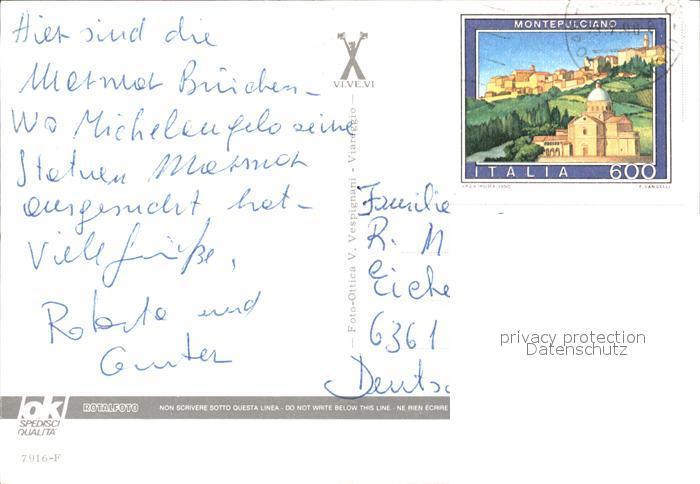 Hier sind die
Marmor Brüchen -
Wo Michelangelo seine
Statuen Marmor
ausgesucht hat -
Viele Grüße,
Roberto und
Gunter
VI.VE.VI
Foto-Ottica V. Vespignani - Viareggio -
MONTEPULCIANO
ITALIA 600
I.P.Z.S. ROMA 1990
F. VANGELLI
Familie
R. M
Eiche
6361
Deutsc
privacy protection
Datenschutz
ok
SPEDISCI
QUALITA'
ROTALFOTO
NON SCRIVERE SOTTO QUESTA LINEA - DO NOT WRITE BELOW THIS LINE - NE RIEN ÉCRIRE
7916-F